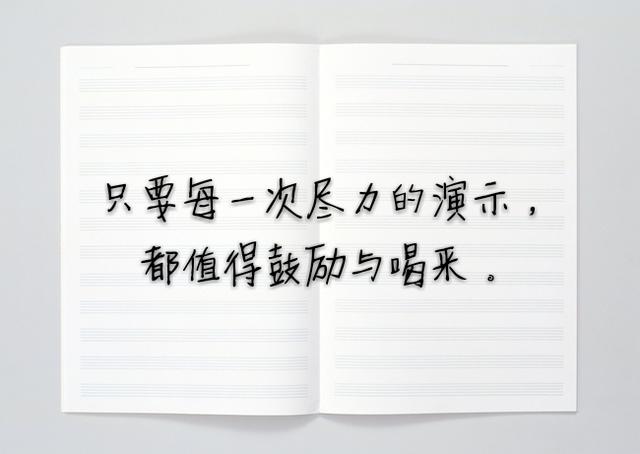 只要每一次尽力的演示，
都值得鼓励与喝采。